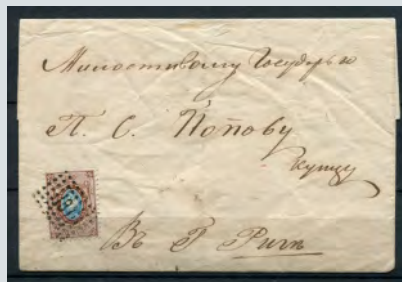 Милостивому Государю
П. С. Попову
купцу
Въ Г Риги